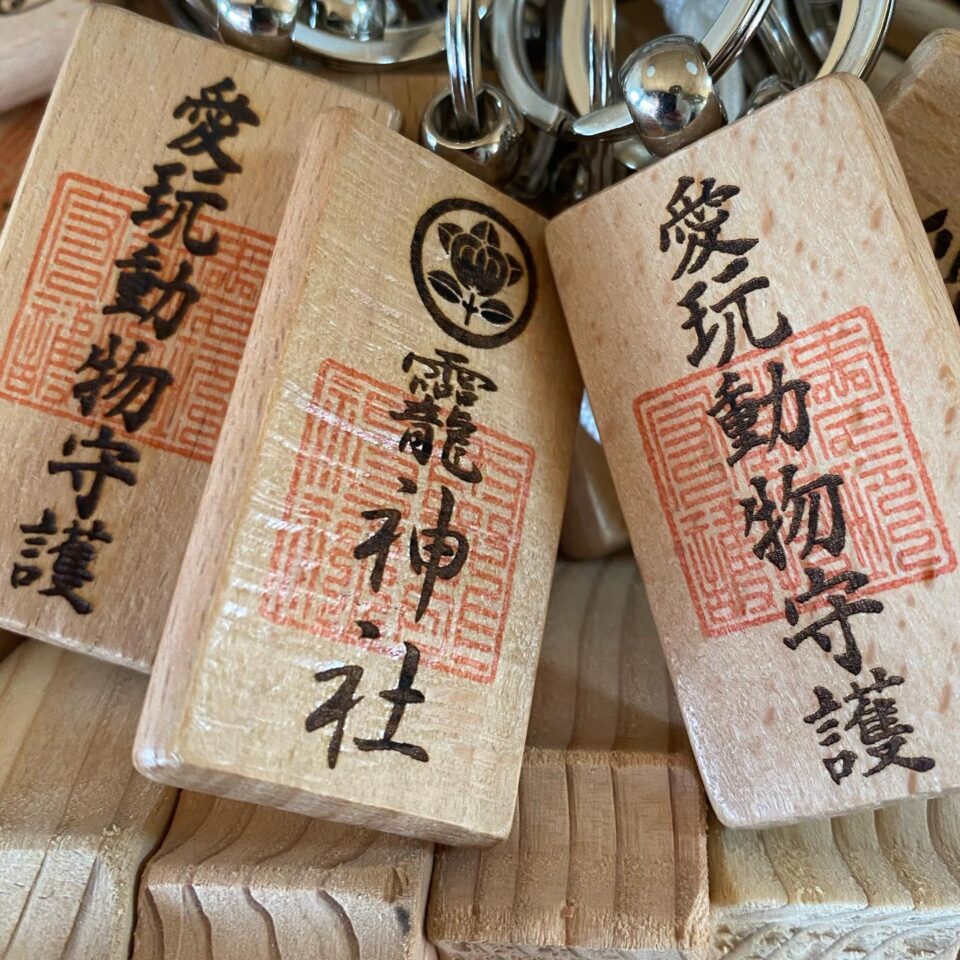 愛玩動物守護
龗神社
愛玩動物守護